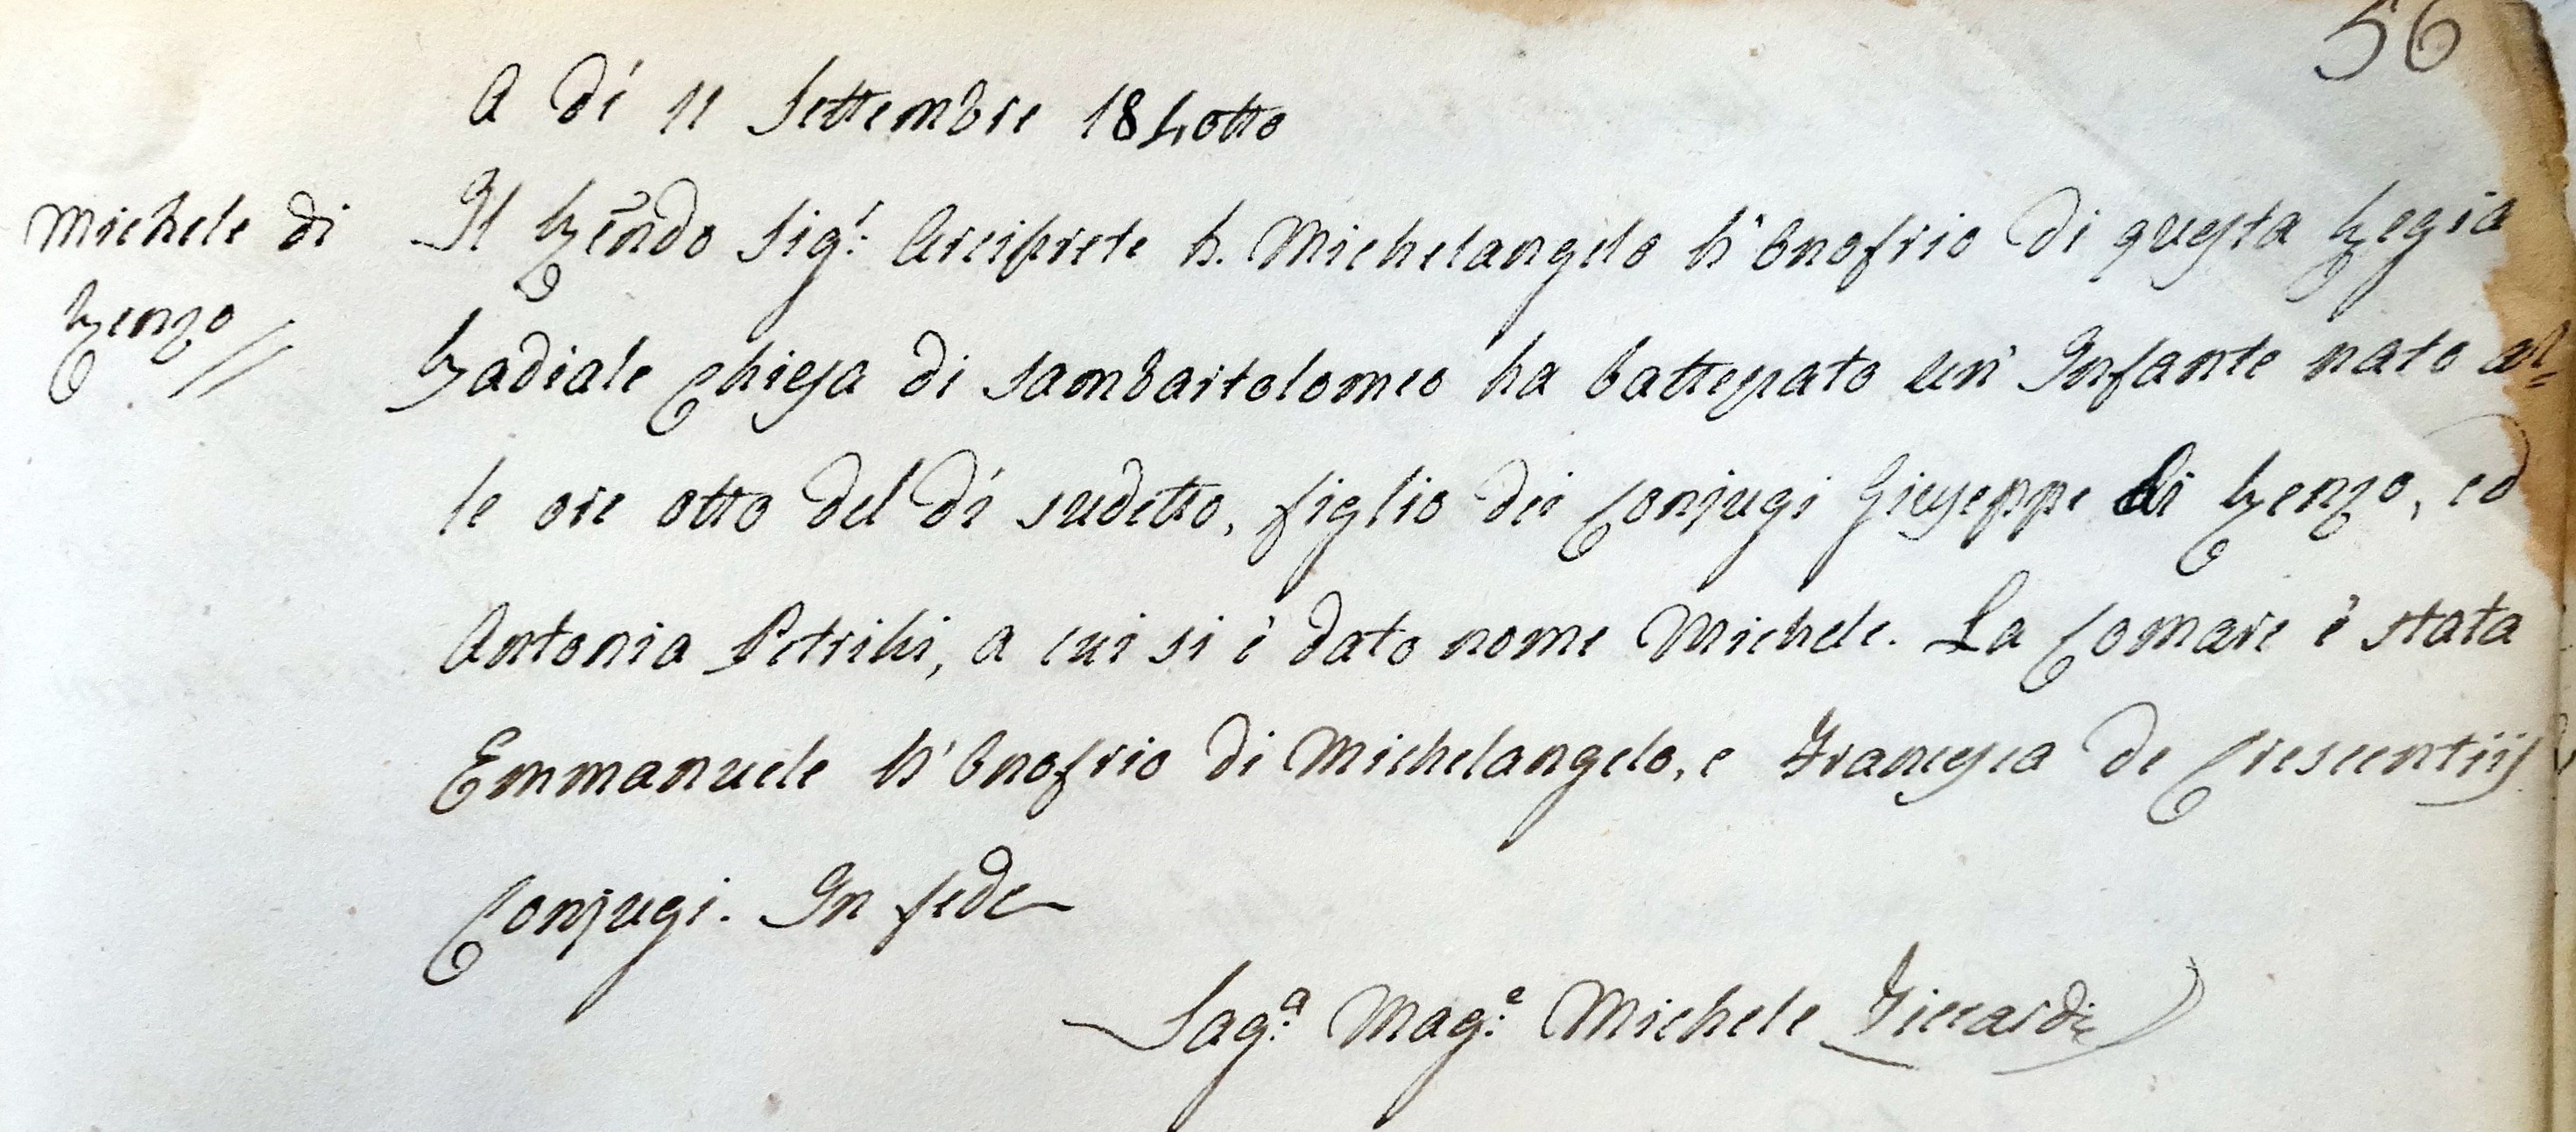 56
A dí 11 Settembre 184otto
Michele di
Renzo
Il Rẽndo Sigr: Arciprete D. Michelangelo D'Onofrio di questa Regia
Badiale Chiesa di Sambartolomeo ha battezzato un' Infante nato al=
le ore otto del dí sudetto, figlio dei Conjugi Giuseppe di Renzo, ed
Antonia Petrilli, a cui si è dato nome Michele. La Comare è stata
Emmanuele D'Onofrio di Michelangelo, e Francesca de Crescentiis
Conjugi. In fede
Sag.a Mag.e Michele Ficcardi